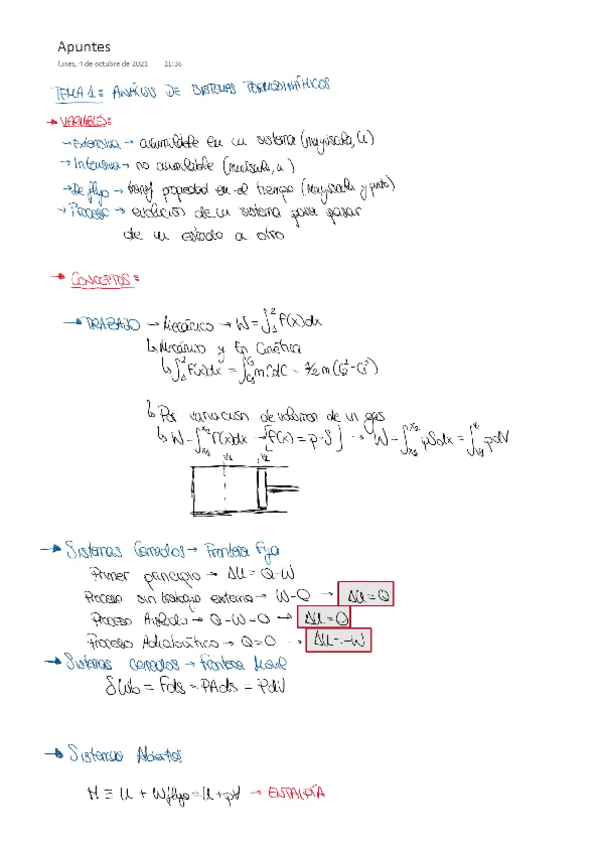 Apuntes
lunes, 4 de octubre de 2021 11:36
TEMA 1: ANÁLISIS DE SISTEMAS TERMODINÁMICOS
→ VARIABLES:
→ Extensiva → acumulable en un sistema (mayúscula, U)
→ Intensiva → no acumulable (minúscula, u)
→ De flujo → transf propiedad en el tiempo (mayúscula y punto)
→ Proceso → evolución de un sistema para pasar
de un estado a otro
→ CONCEPTOS:
→ TRABAJO → Mecánico → W = ∫₁² F(x)dx
↳ Mecánico y En Cinética
↳ ∫₁² F(x)dx = ∫ m·C dC = 1/2 m (C₂² - C₁²)
↳ Por variación de volumen de un gas
↳ W = ∫ₓ₁ˣ² F(x)dx → [F(x) = p·S] → W = ∫ₓ₁ˣ² pSdx = ∫ pdV
V₁ V₂
→ Sistemas Cerrados → Frontera Fija
Primer principio → ΔU = Q-W
Proceso sin trabajo externo → W=0 → ΔU = Q
Proceso Aislado → Q=W=0 → ΔU = 0
Proceso Adiabático → Q=0 → ΔU = -W
→ Sistemas cerrados → Frontera Móvil
δWb = Fds = PAds = PdV
→ Sistemas Abiertos
H ≡ U + Wflujo = U + pV → ENTALPÍA